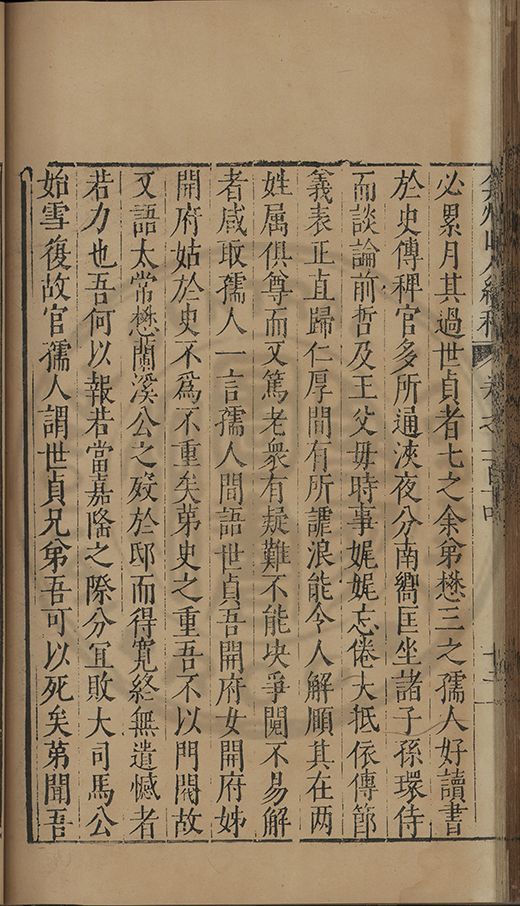 弇州山人續稿 卷之一百十四 十三
必累月其過世貞者七之余弟懋三之孺人好讀書
於史傳稗官多所通浹夜分南嚮匡坐諸子孫環侍
而談論前哲及王父毋時事娓娓忘倦大抵依傳節
義表正直歸仁厚間有所謔浪能令人解頤其在两
姓属俱尊而又篤老衆有疑難不能决爭鬩不易解
者咸取孺人一言孺人間語世貞吾開府女開府姊
開府姑於史不爲不重矣第史之重吾不以門閥故
又語太常懋蘭溪公之殁於邸而得寛終無遺憾者
若力也吾何以報若當嘉隆之際分冝敗大司馬公
始雪復故官孺人謂世貞兄弟吾可以死矣第聞吾